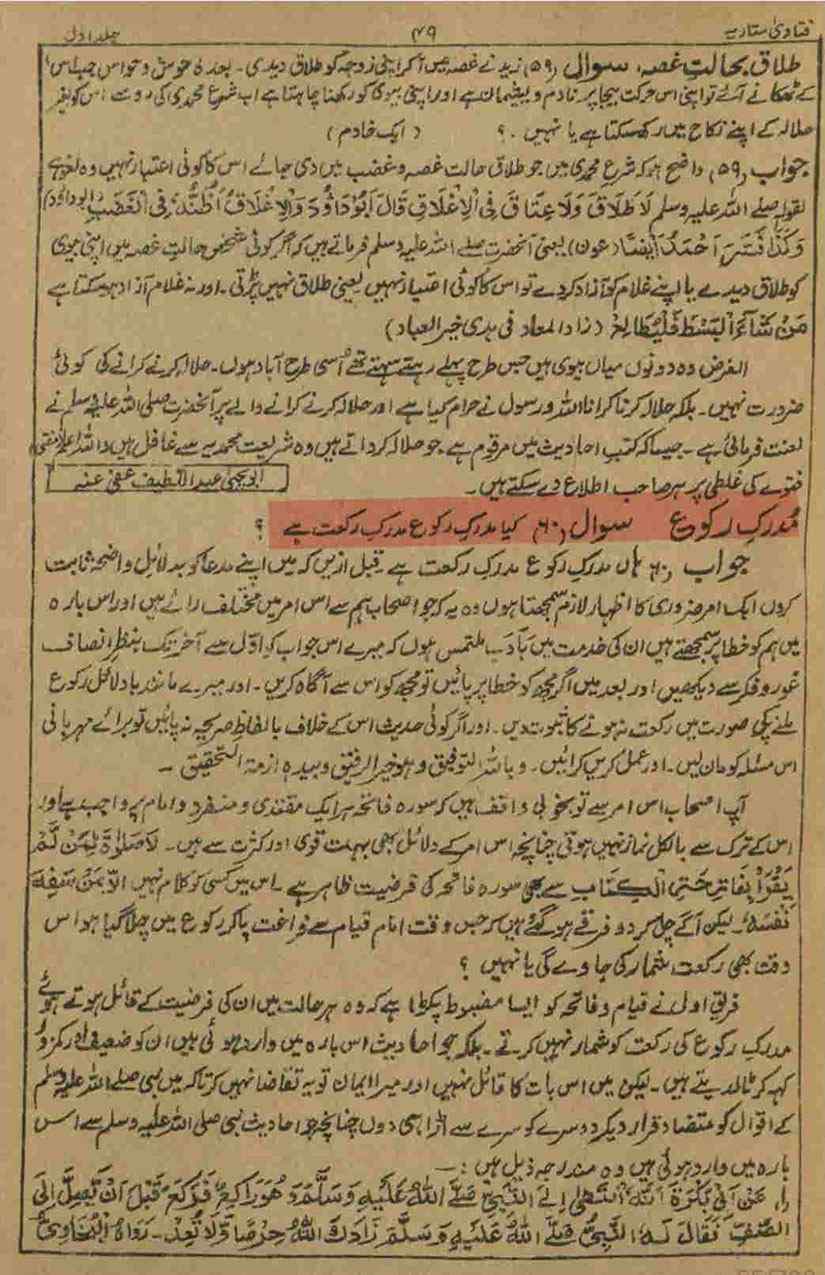 فتاویٰ ستاریہ ۴۹ جلد اول
طلاق بحالتِ غصہ، سوال (۵۹) زید نے غصہ میں آکر اپنی زوجہ کو طلاق دیدی۔ بعدہٗ ہوش و حواس جب اس
کے ٹھکانے آئے تو اپنی اس حرکت بیجا پر نادم و پشیمان ہے اور اپنی بیوی کو رکھنا چاہتا ہے اب شرع محمدی کی رو سے اس کو بغیر
حلالہ کے اپنے نکاح میں رکھ سکتا ہے یا نہیں ۔؟ (ایک خادم)
جواب (۵۹) واضح ہو کہ شرع محمدی میں جو طلاق حالت غصہ و غضب میں دی جائے اس کا کوئی اعتبار نہیں وہ لغو ہے
لقولہ صلے اللہ علیہ وسلم لَا طَلَاقَ وَلَا عِتَاقَ فِی الْاِغْلَاقِ قَالَ اَبُوْدَاوُدَ وَالْاِغْلَاقُ اَظُنُّہٗ فِی الْغَضَبِ (ابوداؤد)
وَکَذَا فَسَّرَ اَحْمَدُ اَیْضًا (عون) یعنی آنحضرت صلے اللہ علیہ وسلم فرماتے ہیں کہ اگر کوئی شخص حالتِ غصہ میں اپنی بیوی
کو طلاق دیدے یا اپنے غلام کو آزاد کردے تو اس کا کوئی اعتبار نہیں یعنی طلاق نہیں پڑتی۔ اور نہ غلام آزاد ہوسکتا ہے
مَنْ شَاءَ الْبَسْطَ فَلْیُطَالِعْ (زاد المعاد فی ہدی خیر العباد)
الغرض وہ دونوں میاں بیوی ہیں جس طرح پہلے رہتے سہتے تھے اُسی طرح آباد ہوں۔ حلالہ کرنے کرانے کی کوئی
ضرورت نہیں۔ بلکہ حلالہ کرنا کرانا اللہ و رسول نے حرام کیا ہے اور حلالہ کرنے کرانے والے پر آنحضرت صلی اللہ علیہ وسلم نے
لعنت فرمائی ہے۔ جیسا کہ کتبِ احادیث میں مرقوم ہے۔ جو حلالہ کرواتے ہیں وہ شریعت محمدیہ سے غافل ہیں واللہ اعلم مفتی
فتوے کی غلطی پر ہر صاحب اطلاع دے سکتے ہیں۔ ابو یحییٰ عبد اللطیف عفی عنہ
مُدرکِ رکوع سوال (۶۰) کیا مدرکِ رکوع مدرکِ رکعت ہے ؟
جواب (۶۰) ہاں مدرکِ رکوع مدرکِ رکعت ہے۔ قبل ازیں کہ میں اپنے مدعا کو بدلائل واضحہ ثابت
کروں ایک امر ضروری کا اظہار لازم سمجھتا ہوں وہ یہ کہ جو اصحاب ہم سے اس امر میں مختلف رائے ہیں اور اس بارہ
میں ہم کو خطا پر سمجھتے ہیں ان کی خدمت میں بَادَب ملتمس ہوں کہ میرے اس جواب کو اوّل سے آخر تک بنظرِ انصاف
غور و فکر سے دیکھیں اور بعد میں اگر مجھ کو خطا پر پائیں تو مجھ کو اس سے آگاہ کریں۔ اور میرے مانند بادلائل رکوع
ملنے کی صورت میں رکعت نہ ہونے کا ثبوت دیں۔ اور اگر کوئی حدیث اس کے خلاف بالفاظِ صریحہ نہ پائیں تو برائے مہربانی
اس مسئلہ کو مان لیں۔ اور عمل کریں کرائیں۔ وباللہ التوفیق وھو خیر الرفیق وبیدہ ازمۃ التحقیق۔
آپ اصحاب اس امر سے تو بخوبی واقف ہیں کہ سورہ فاتحہ ہر ایک مقتدی و منفرد و امام پر واجب ہے اور
اس کے ترک سے بالکل نماز نہیں ہوتی چنانچہ اس امر کے دلائل بھی بہت قوی اور کثرت سے ہیں۔ لَاصَلٰوۃَ لِمَنْ لَّمْ
یَقْرَأْ بِفَاتِحَۃِ الْکِتَابِ سے بھی سورہ فاتحہ کی فرضیت ظاہر ہے۔ اس میں کسی کو کلام نہیں اِلَّا مَنْ سَفِهَ
نَفْسَهٗ۔ لیکن آگے چل کر دو فرقے ہوگئے ہیں کہ جس وقت امام قیام سے فراغت پا کر رکوع میں چلا گیا ہو اس
وقت بھی رکعت شمار کی جاوے گی یا نہیں ؟
فریق اول نے قیام و فاتحہ کو ایسا مضبوط پکڑا ہے کہ وہ ہر حالت میں ان کی فرضیت کے قائل ہوتے ہوئے
مدرکِ رکوع کی رکعت کو شمار نہیں کرتے۔ بلکہ جو احادیث اس بارہ میں وارد ہوئی ہیں ان کو ضعیف اور کمزور
کہہ کر ٹال دیتے ہیں۔ لیکن میں اس بات کا قائل نہیں اور میرا ایمان تو یہ تقاضا نہیں کرتا کہ میں نبی صلے اللہ علیہ وسلم
کے اقوال کو متضاد قرار دیکر دوسرے کو سرے سے اڑا ہی دوں چنانچہ جو احادیث نبی صلی اللہ علیہ وسلم سے اس
بارہ میں وارد ہوئی ہیں وہ مندرجہ ذیل ہیں :۔
(۱) عَنْ اَبِیْ بَکْرَۃَ اَنَّہُ انْتَھٰی اِلَی النَّبِیِّ صَلَّے اللہُ عَلَیْہِ وَسَلَّمَ وَھُوَ رَاکِعٌ فَرَکَعَ قَبْلَ اَنْ یَّصِلَ اِلَی
الصَّفِّ فَقَالَ لَہُ النَّبِیُّ صَلَّے اللہُ عَلَیْہِ وَسَلَّمَ زَادَکَ اللہُ حِرْصًا وَّلَا تَعُدْ۔ رَوَاہُ الْبُخَارِیُّ